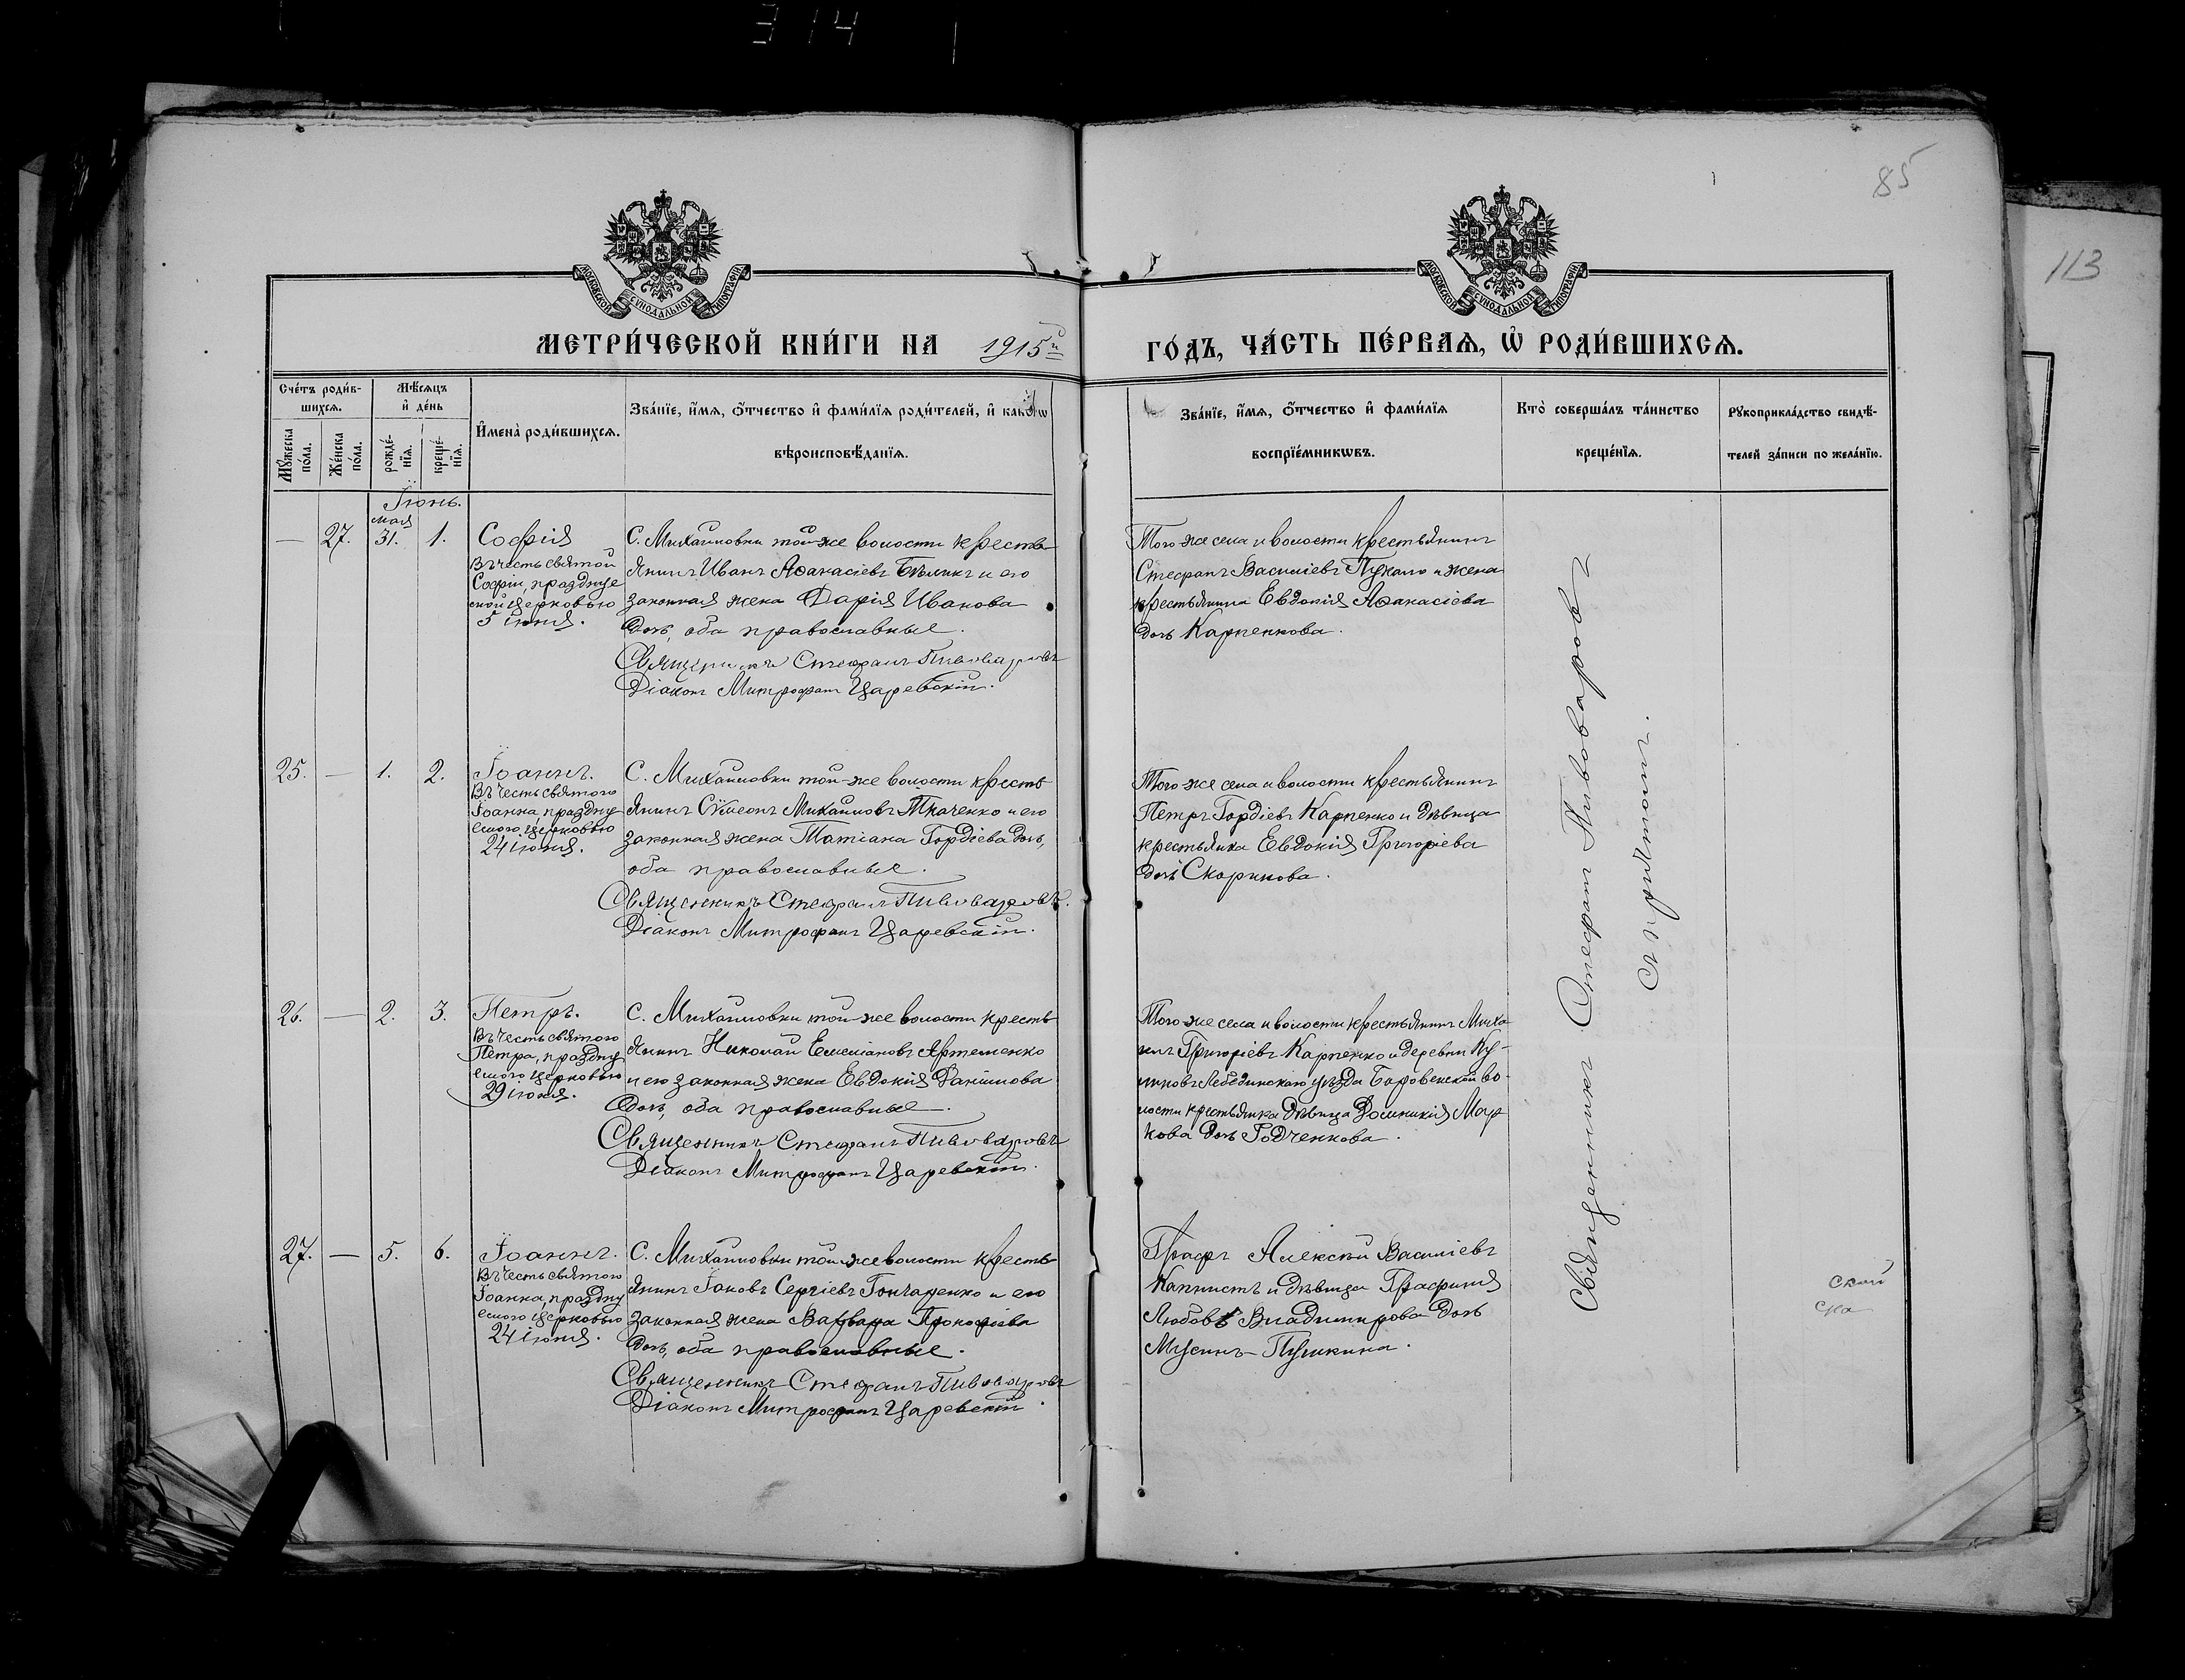 314
85
113
МОСКОВСКОЙ СѴНОДАЛЬНОЙ ТИПОГРАФІИ
МОСКОВСКОЙ СѴНОДАЛЬНОЙ ТИПОГРАФІИ
МЕТРИ́ЧЕСКОЙ КНИ́ГИ НА 1915й ГО́ДЪ, ЧА́СТЬ ПЕ́РВАѦ, Ѡ҆ РОДИ́ВШИХСѦ.
Сче́тъ роди́в-
шихсѧ.
Мꙋ́жеска по́ла.
Же́нска по́ла.
Мѣ́сѧцъ
и҆ де́нь
рожде́-
нїѧ.
креще́-
нїѧ.
И҆мена̀ роди́вшихсѧ.
Зва́нїе, и҆́мѧ, ѻ҆́тчество и҆ фами́лїѧ роди́телей, и҆ како́гѡ
вѣроисповѣ́данїѧ.
Зва́нїе, и҆́мѧ, ѻ҆́тчество и҆ фами́лїѧ
воспрїе́мникѡвъ.
Кто̀ соверша́лъ та́инство
креще́нїѧ.
Рꙋкоприкла́дство свидѣ́-
телей за́писи по жела́нїю.
Іюнь.
— 27. мая 31. 1.
Софія
Въ честь святой
Софіи, праздзуе
мой церковью
5 іюня.
С. Михайловки той-же волости кресть
янинъ Иванъ Аѳанасіевъ Бѣликъ и его
законная жена Дарія Иванова
дочь, оба православные.
Священникъ Стефанъ Пивоваровъ
Діаконъ Митрофанъ Царевскій.
Того же села и волости крестьянинъ
Стефанъ Василіевъ Пукало и жена
крестьянина Евдокія Аѳанасіева
дочь Карпенкова.
25. — 1. 2.
Іоаннъ.
Въ честь святого
Іоанна, праздну
емого церковью
24 іюня.
С. Михайловки той-же волости кресть
янинъ Сѵмеонъ Михайловъ Ткаченко и его
законная жена Татіана Гордіева дочь,
оба православные.
Священникъ Стефанъ Пивоваровъ.
Діаконъ Митрофанъ Царевскій.
Того же села и волости крестьянинъ
Петръ Гордіевъ Карпенко и дѣвица
крестьянка Евдокія Григоріева
дочь Скорикова.
26. — 2. 3.
Петръ.
Въ честь святого
Петра, праздну
емого церковью
29 іюня.
С. Михайловки той-же волости кресть
янинъ Николай Емеліановъ Артеменко
и его законная жена Евдокія Даніилова
дочь, оба православные.
Священникъ Стефанъ Пивоваровъ
Діаконъ Митрофанъ Царевскій.
Того-же села и волости крестьянинъ Миха
илъ Григоріевъ Карпенко и деревни Ку-
ликовъ Лебединскаго уѣзда Боровенской во-
лости крестьянка дѣвица Домникія Мар
кова дочь Годченкова.
27. — 5. 6.
Іоаннъ.
Въ честь святого
Іоанна, праздну
емого церковью
24 іюня.
С. Михайловки той-же волости кресть
янинъ Іаковъ Сергіевъ Гончаренко и его
законная жена Варвара Прокофіева
дочь, оба православные.
Священникъ Стефанъ Пивоваровъ
Діаконъ Митрофанъ Царевскій.
Графъ Алексѣй Василіевъ
Капнистъ и дѣвица Графиня
Любовь Владимирова дочь
Мусинъ-Пушкина.
Священникъ Стефанъ Пивоваровъ
съ причтомъ.
ской